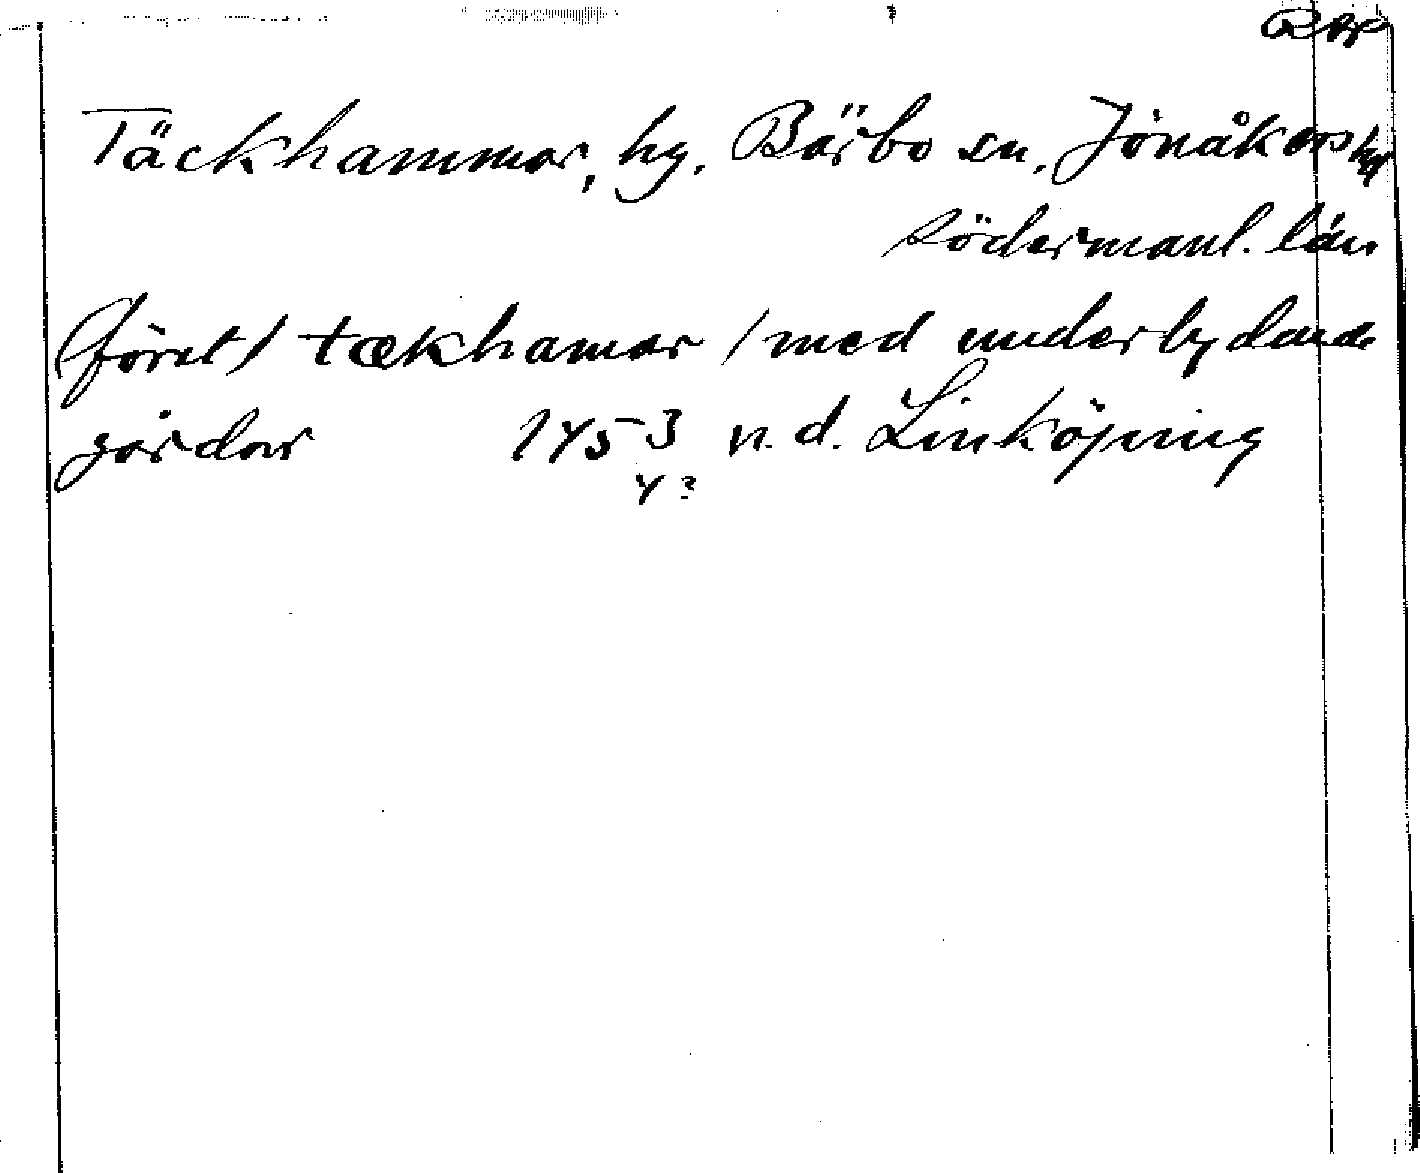 Rap
Täckhammar, hg. Bärbo sn. Jönåkers hd
Södermanl. län
(föret/ tækhamar / med underlydande
gårdar 1453 n. d. Linköping
4 ?